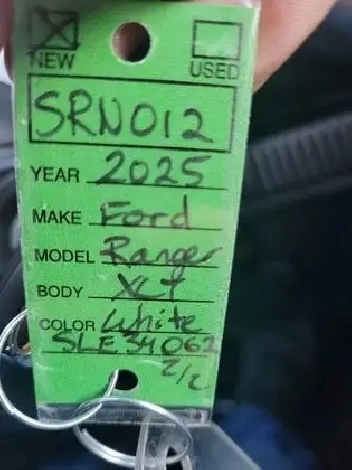 NEW USED
SRN012
YEAR 2025
MAKE Ford
MODEL Ranger
BODY XLT
COLOR White
SLE34062
2/2